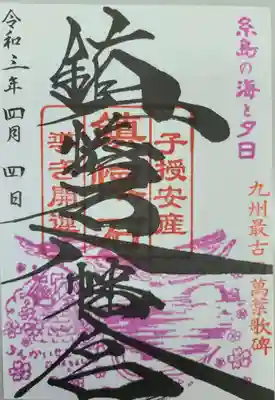 糸島の海と夕日
九州最古 萬葉歌碑
子授安産
鎮懐石八幡宮
開運
令和三年四月四日